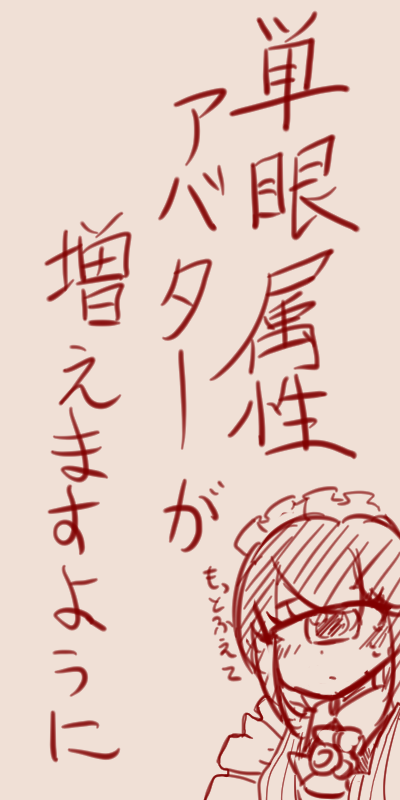 単眼属性
アバターが
増えますように
もっとふえて